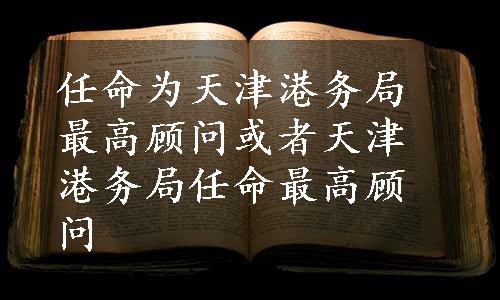 任命为天津港务局
最高顾问或者天津
港务局任命最高顾
问